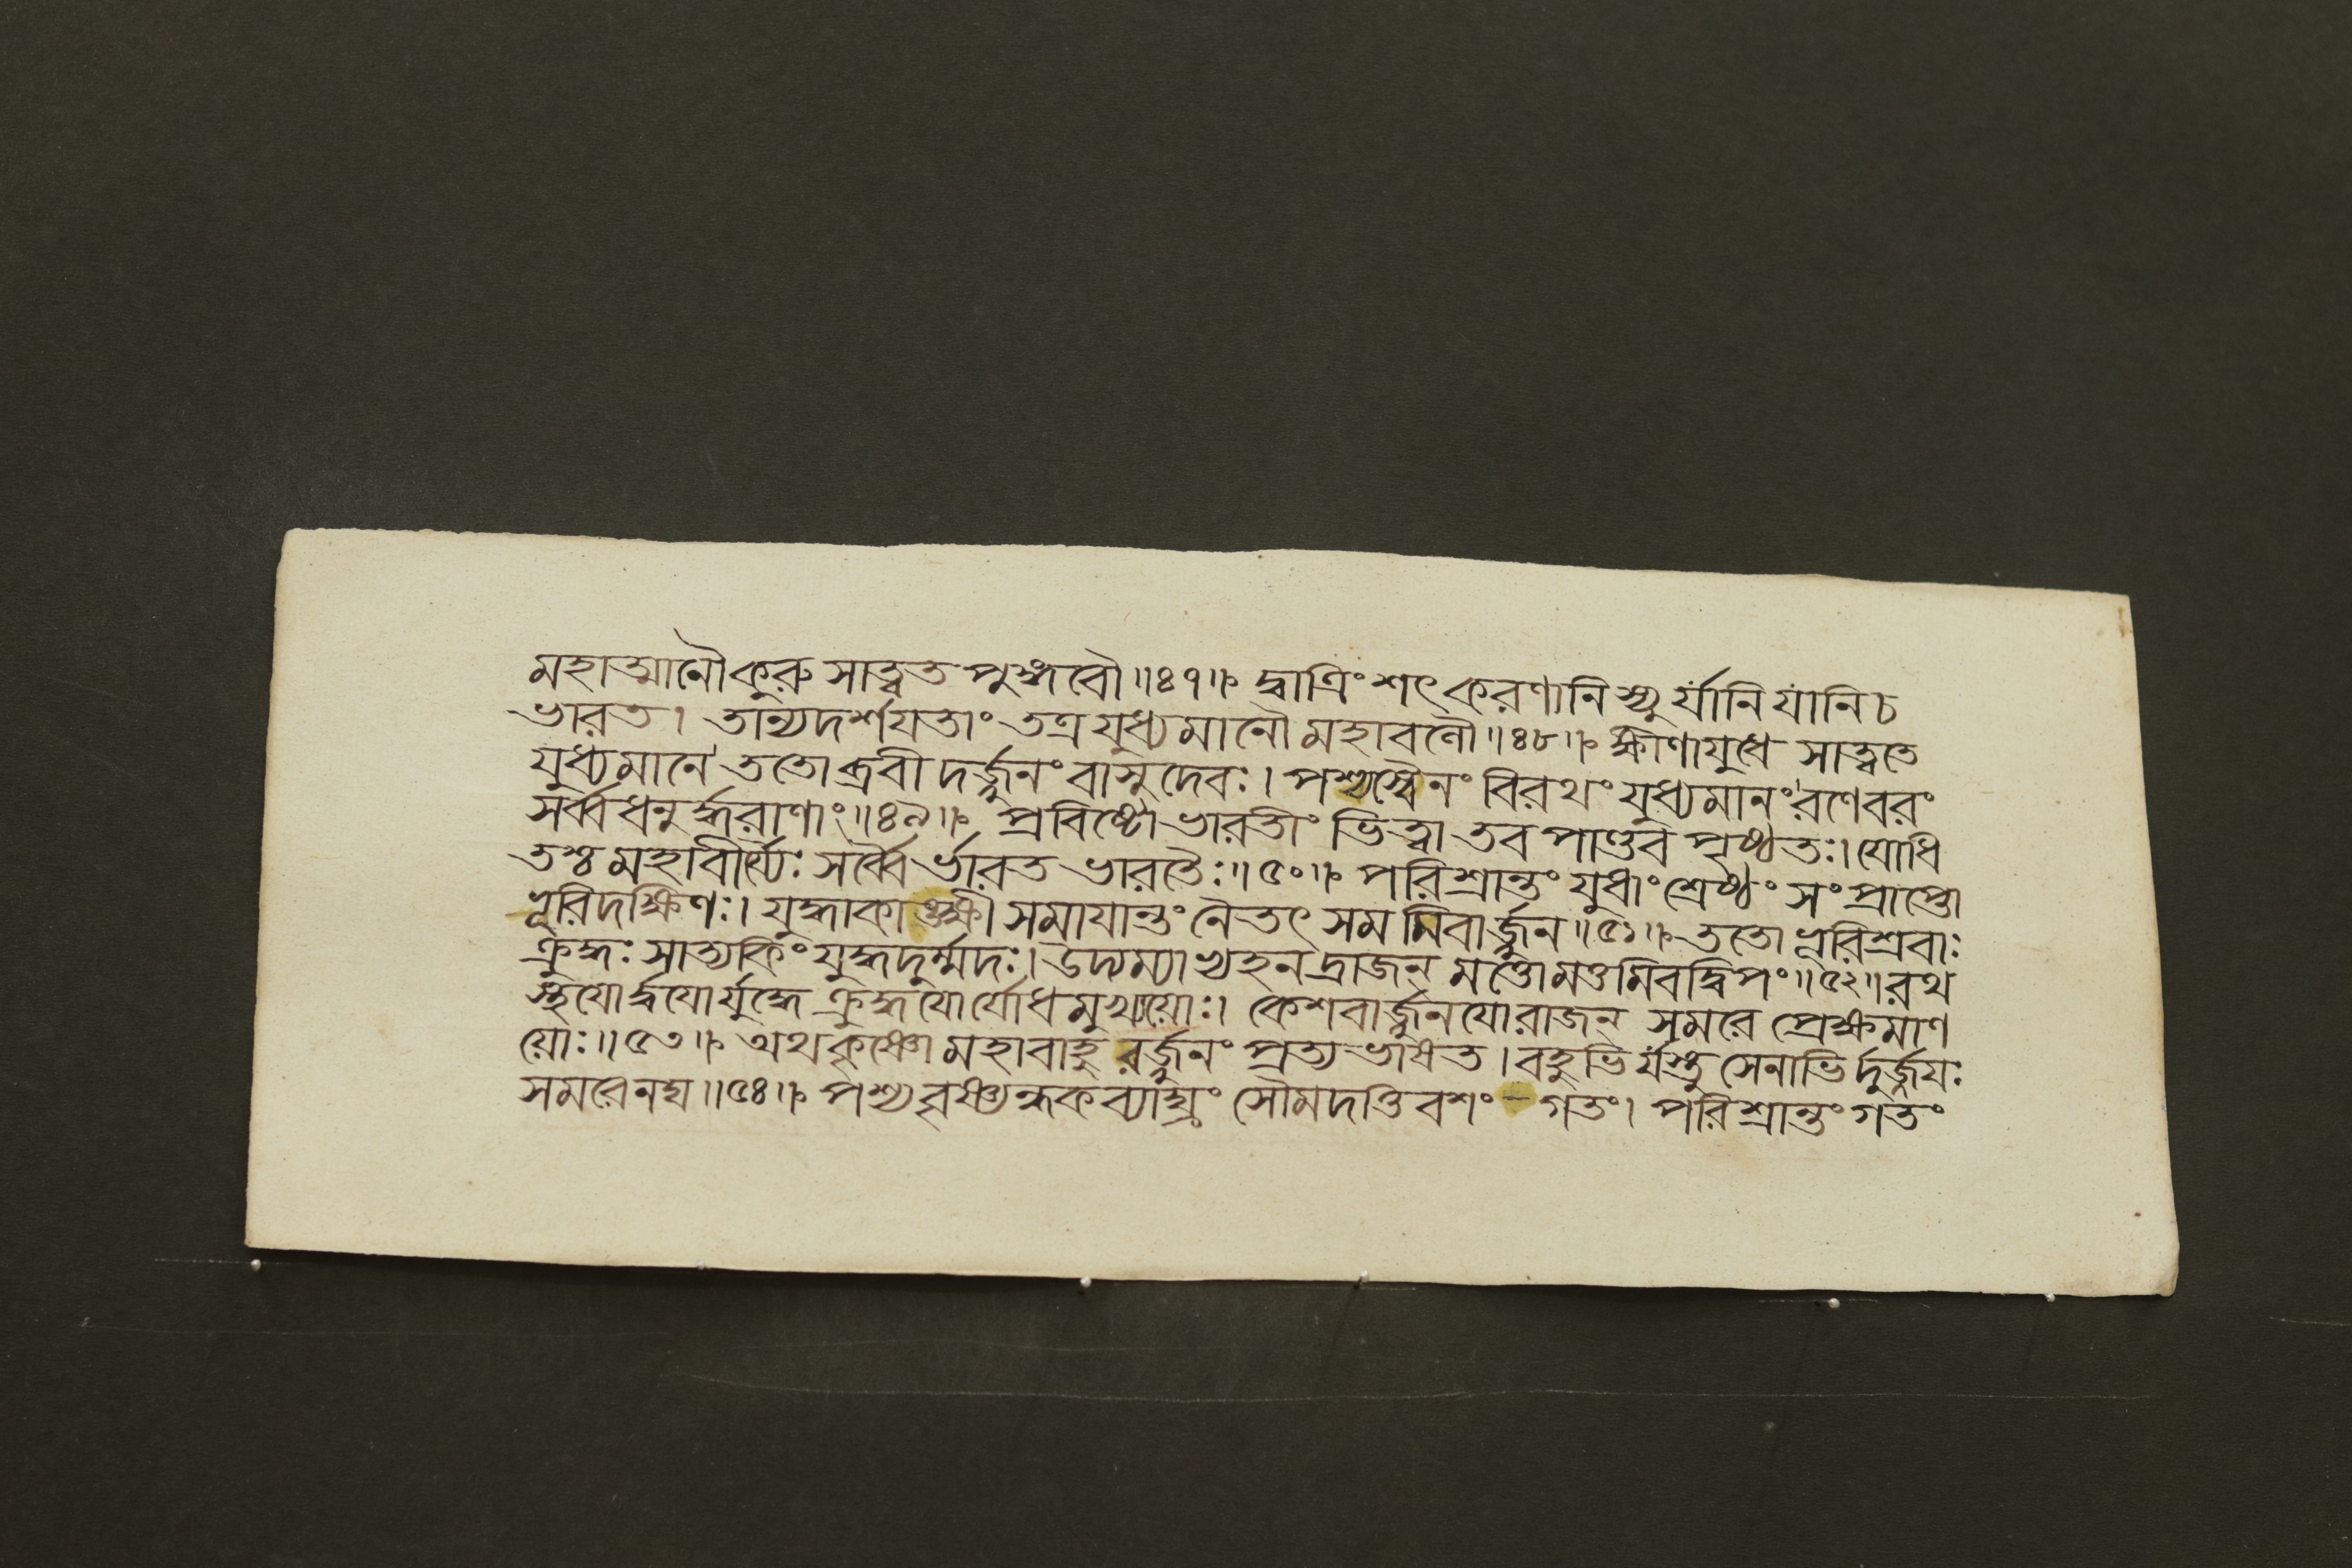 মহাত্মানৌকুরুসাত্ত্বতপুঙ্গবৌ॥৪৭॥ দ্বাত্রিংশৎকরণানিস্যুর্যানিযানিচ
ভারত। তান্যদর্শযতাং তত্রযুধ্যমানৌমহাবলৌ॥৪৮॥ ক্ষীণাযুধে সাত্ত্বতে
যুধ্যমানে ততোব্রবীদর্জ্জুনংবাসুদেবঃ। পশ্যস্বৈনং বিরথংযুধ্যমানংরণেবরং
সর্ব্বধনুর্দ্ধরাণাং॥৪৯॥ প্রবিষ্টোভারতীং ভিত্ত্বা তবপাণ্ডবপৃষ্ঠতঃ। যোধি
তশ্চমহাবীর্য্যৈঃ সর্ব্বৈর্ভারতভারতৈঃ॥৫০॥ পরিশ্রান্তং যুধাংশ্রেষ্ঠং সংপ্রাপ্তো
ভূরিদক্ষিণঃ। যুদ্ধাকাঙ্ক্ষী সমাযান্তং নৈতৎ সমমিবার্জ্জুন॥৫১॥ ততোভূরিশ্রবাঃ
ক্রুদ্ধঃ সাত্যকিংযুদ্ধদুর্ম্মদঃ। উদ্যম্যাভ্যহনদ্রাজন্ মত্তোমত্তমিবদ্বিপং॥৫২॥ রথ
স্থযোর্দ্বযোর্যুদ্ধে ক্রুদ্ধযোর্যোধমুখ্যয়োঃ। কেশবার্জ্জুনযোরাজন্ সমরে প্রেক্ষমাণ
য়োঃ॥৫৩॥ অথকৃষ্ণোমহাবাহুরর্জ্জুনং প্রত্যভাষত। বহুভির্যস্তুসেনাভির্দুর্জ্জযঃ
সমরেনঘ॥৫৪॥ পশ্যবৃষ্ণ্যন্ধকব্যাঘ্রং সৌমদত্তিবশং গতং। পরিশ্রান্তংগতং